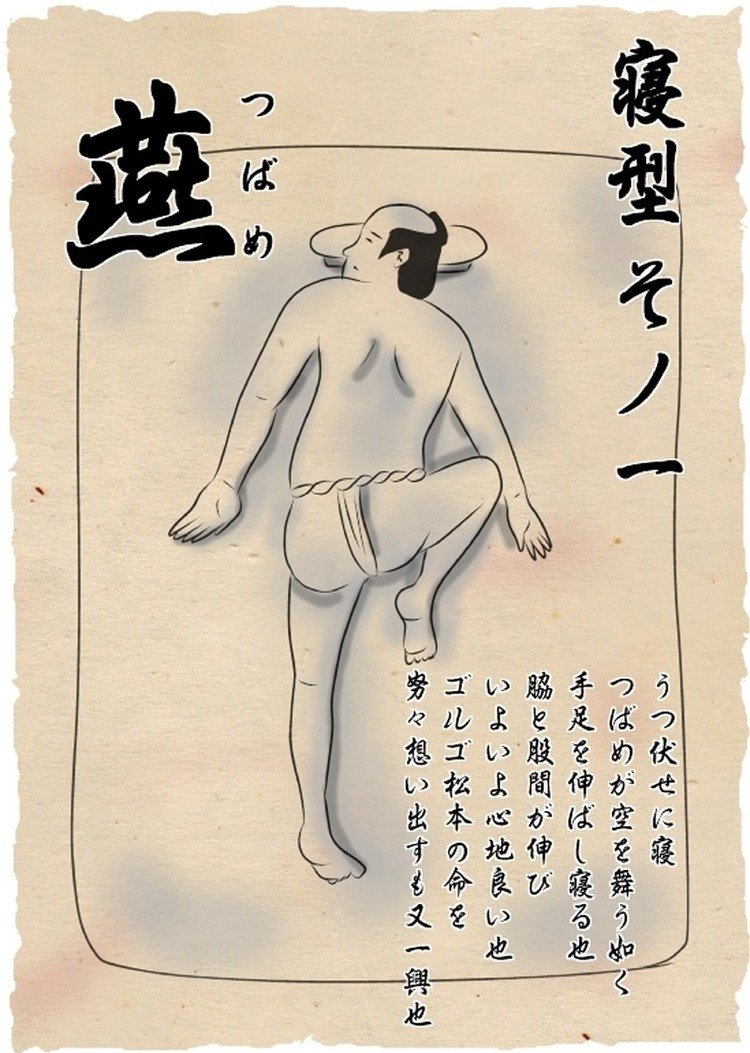 寝型 そノ一
燕
つばめ
うつ伏せに寝
つばめが空を舞う如く
手足を伸ばし寝る也
脇と股間が伸び
いよいよ心地良い也
ゴルゴ松本の命を
努々想い出すも又一興也